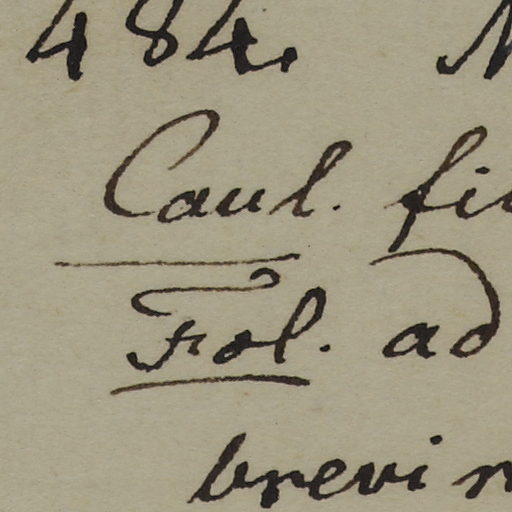 484.
Caul.
Fol. ad
brevi